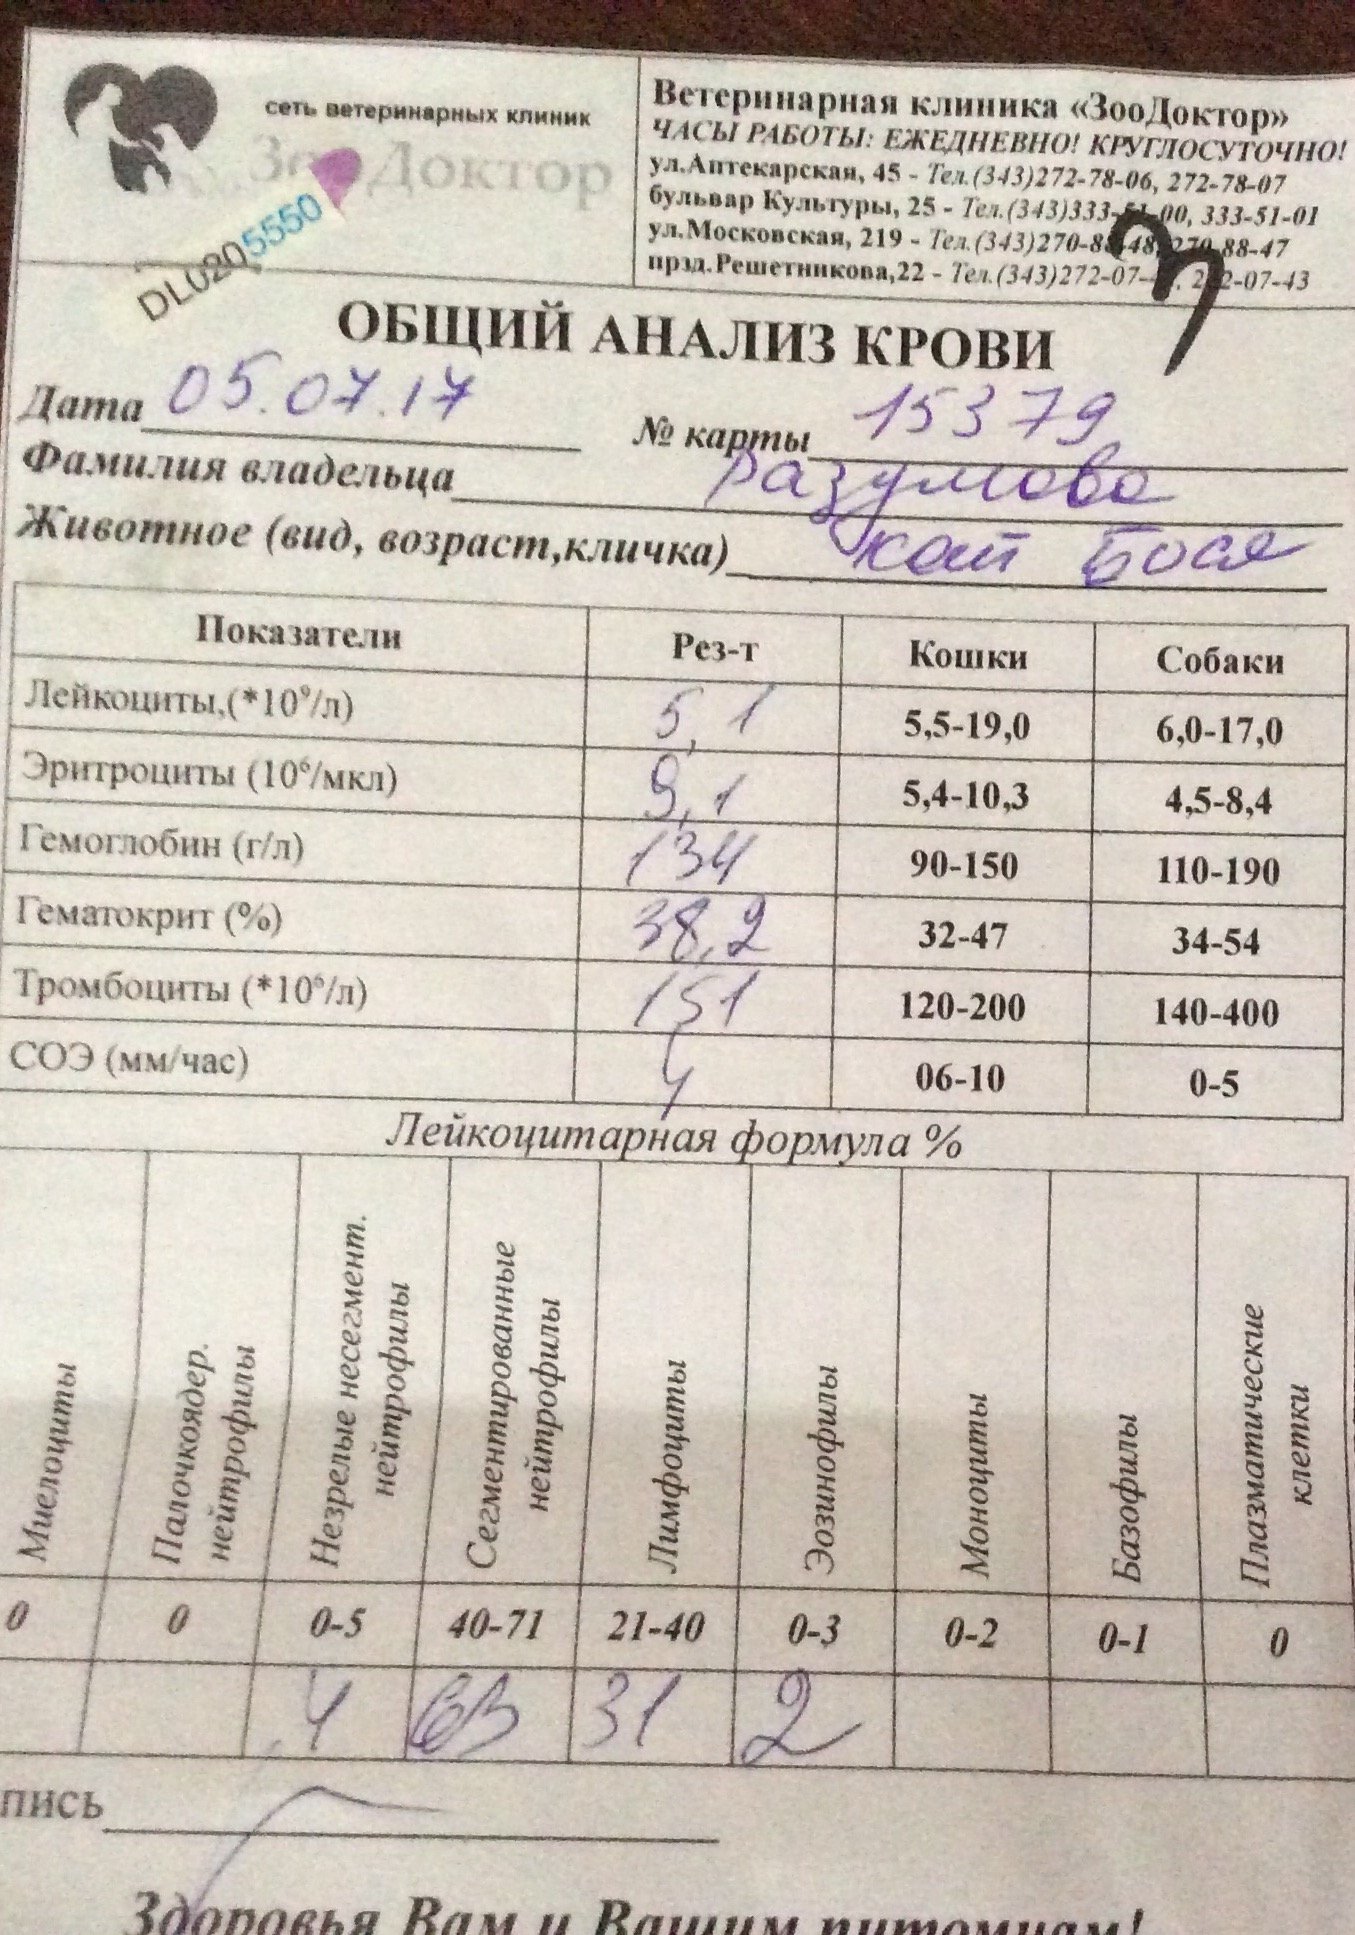 сеть ветеринарных клиник
ЗооДоктор
DL0205550
Ветеринарная клиника «ЗооДоктор»
ЧАСЫ РАБОТЫ: ЕЖЕДНЕВНО! КРУГЛОСУТОЧНО!
ул.Аптекарская, 45 - Тел.(343)272-78-06, 272-78-07
бульвар Культуры, 25 - Тел.(343)333-51-00, 333-51-01
ул.Московская, 219 - Тел.(343)270-88-48, 270-88-47
прзд.Решетникова,22 - Тел.(343)272-07-43
ОБЩИЙ АНАЛИЗ КРОВИ
Дата 05.07.17 № карты 15379
Фамилия владельца Разумова
Животное (вид, возраст,кличка) кот Бося
Показатели Рез-т Кошки Собаки
Лейкоциты,(*10⁹/л) 5,1 5,5-19,0 6,0-17,0
Эритроциты (10⁶/мкл) 9,1 5,4-10,3 4,5-8,4
Гемоглобин (г/л) 134 90-150 110-190
Гематокрит (%) 38,2 32-47 34-54
Тромбоциты (*10⁶/л) 151 120-200 140-400
СОЭ (мм/час) 4 06-10 0-5
Лейкоцитарная формула %
Миелоциты
Палочкоядер. нейтрофилы
Незрелые несегмент. нейтрофилы
Сегментированные нейтрофилы
Лимфоциты
Эозинофилы
Моноциты
Базофилы
Плазматические клетки
0 0 0-5 40-71 21-40 0-3 0-2 0-1 0
4 63 31 2
пись
Здоровья Вам и Вашим питомцам!